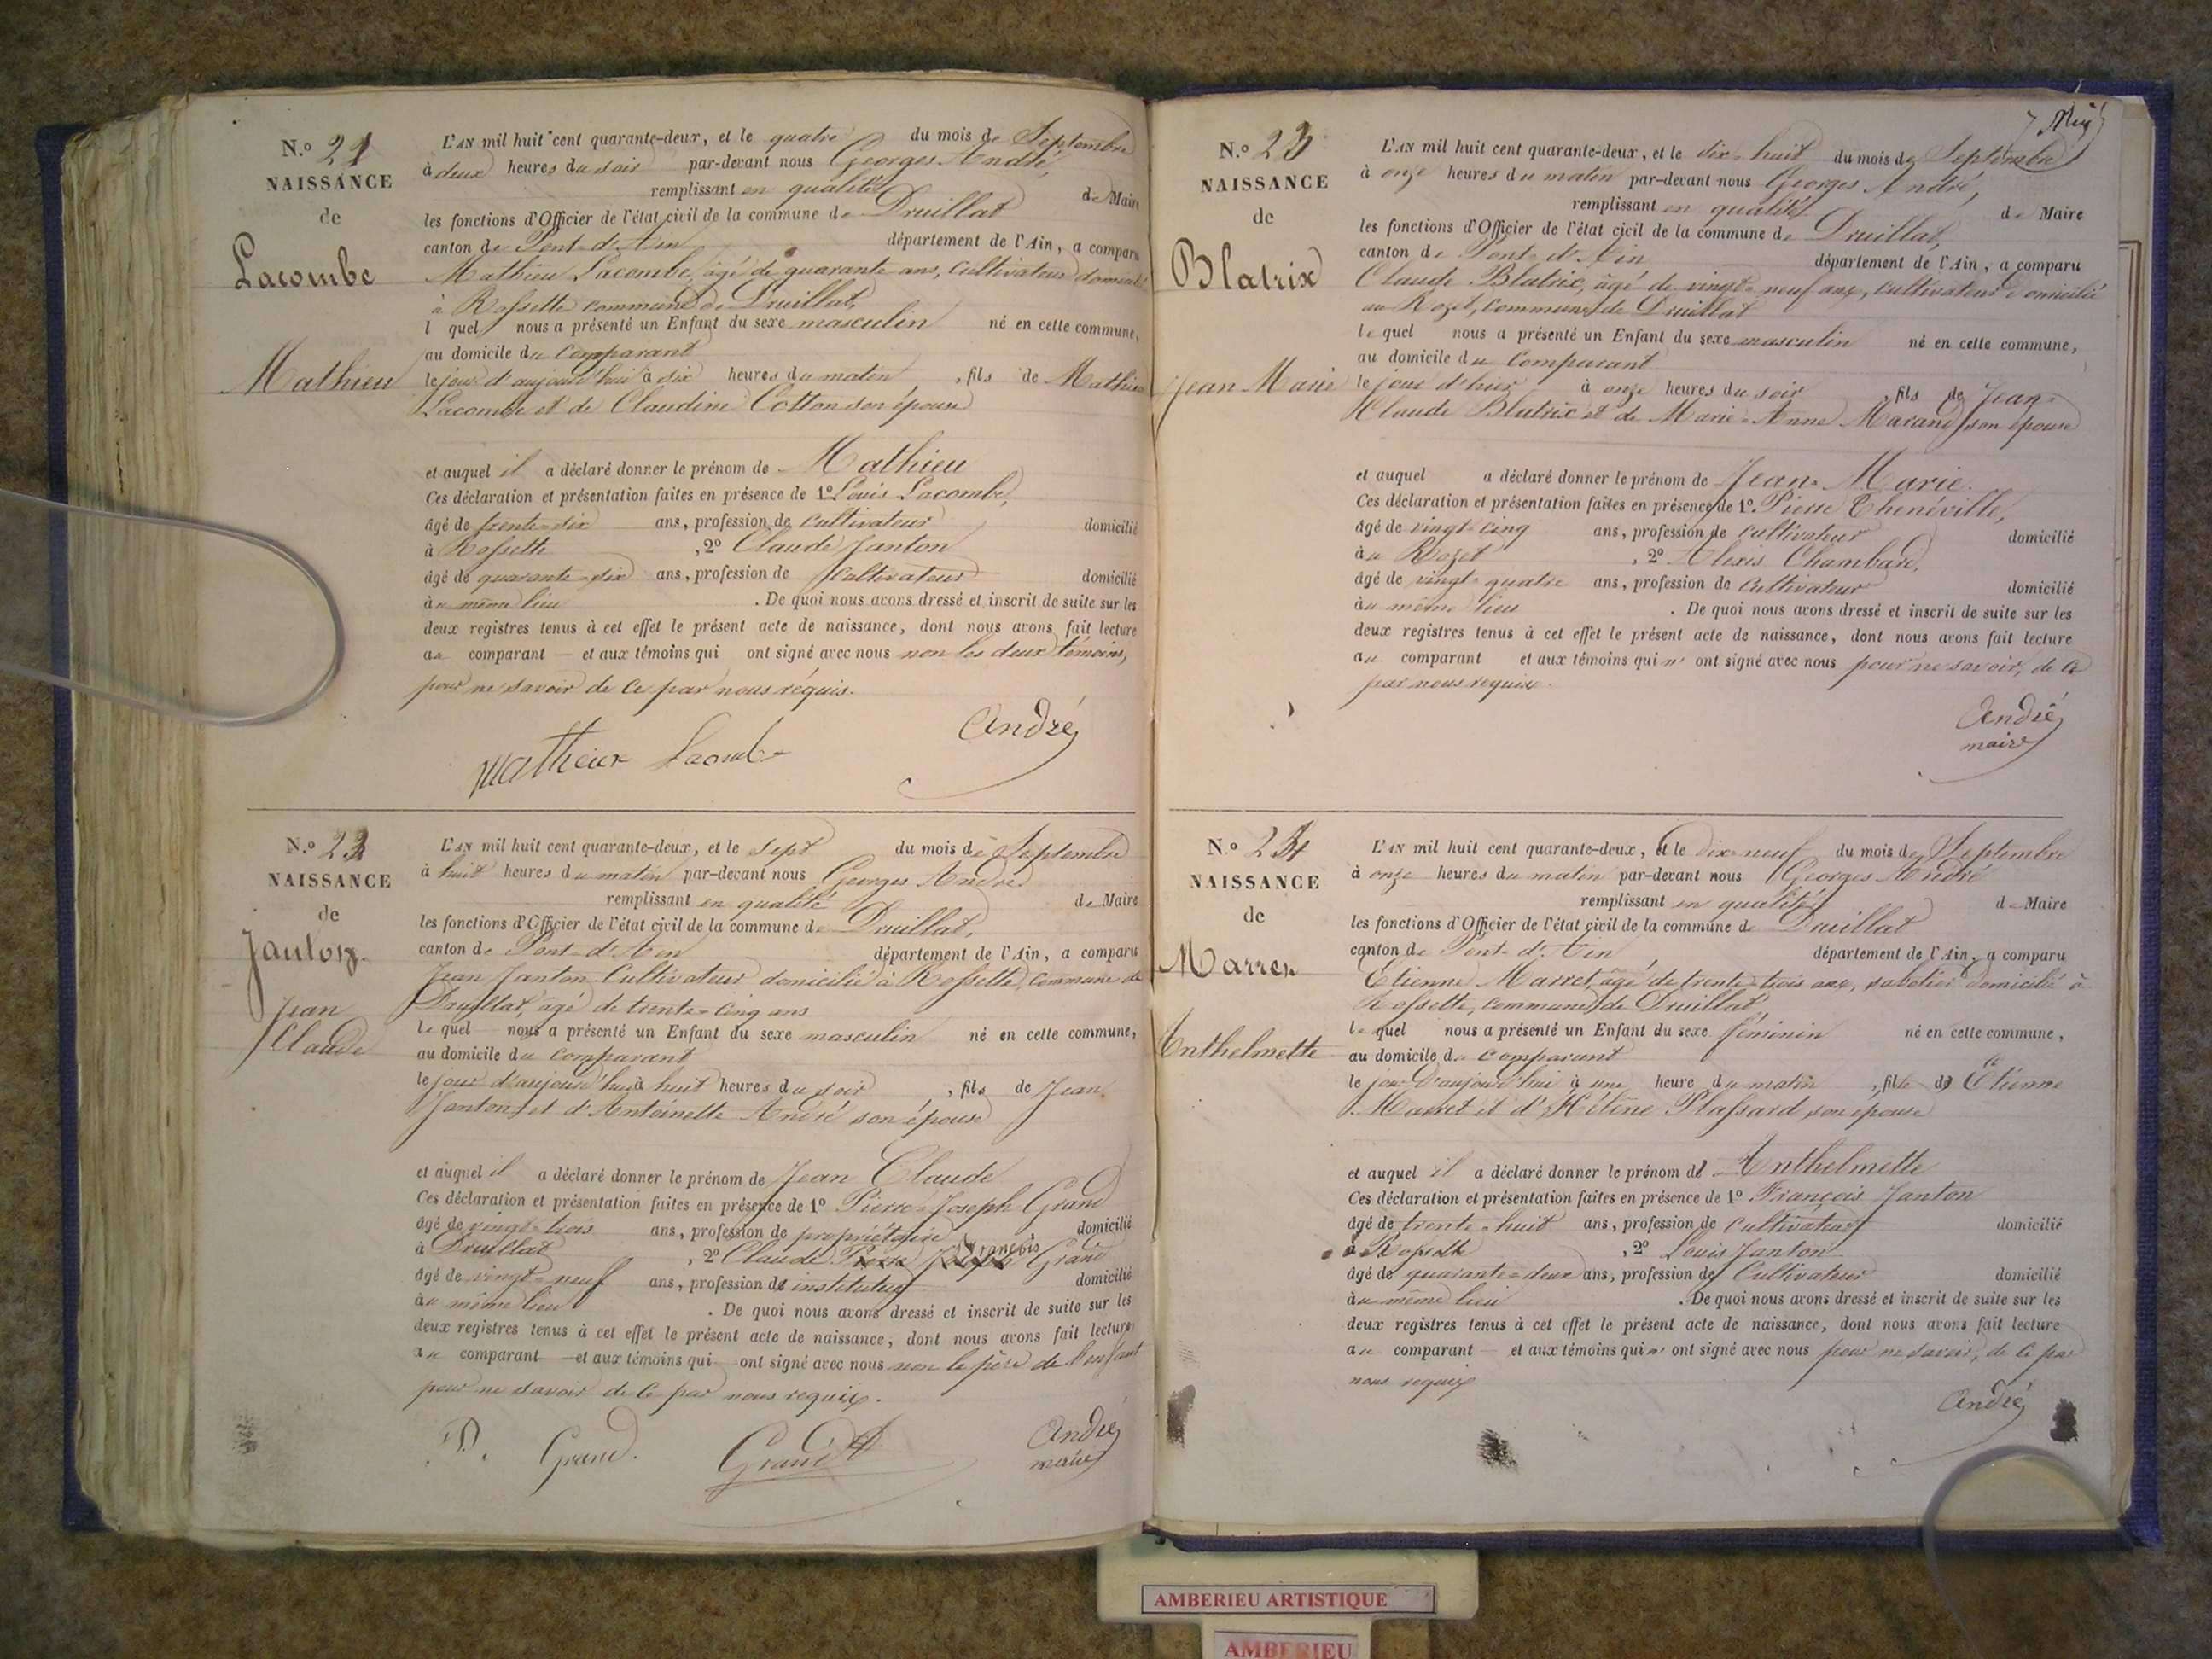 N.o 21
NAISSANCE
de
Lacombe
Mathieu
L'AN mil huit cent quarante-deux, et le quatre du mois de Septembre
à deux heures du soir par-devant nous Georges André,
remplissant en qualité de Maire
les fonctions d'Officier de l'état civil de la commune de Druillat
canton de Pont-d'Ain département de l'Ain, a comparu
Mathieu Lacombe, âgé de quarante ans, cultivateur domicilié
à Rossette commune de Druillat,
l quel nous a présenté un Enfant du sexe masculin né en cette commune,
au domicile du comparant
le jour d'aujourd'hui à dix heures du matin, fils de Mathieu
Lacombe et de Claudine Cotton son épouse
et auquel il a déclaré donner le prénom de Mathieu
Ces déclaration et présentation faites en présence de 1o Louis Lacombe,
âgé de trente-six ans, profession de cultivateur domicilié
à Rossette, 2o Claude Janton
âgé de quarante-six ans, profession de cultivateur domicilié
au même lieu. De quoi nous avons dressé et inscrit de suite sur les
deux registres tenus à cet effet le présent acte de naissance, dont nous avons fait lecture
au comparant — et aux témoins qui ont signé avec nous non les deux témoins,
pour ne savoir de ce par nous réquis.
André
Mathieu
N.o
NAISSANCE
de
Janton
Jean
Claude
L'AN mil huit cent quarante-deux, et le sept du mois de Septembre
à huit heures du matin par-devant nous Georges André
remplissant en qualité de Maire
les fonctions d'Officier de l'état civil de la commune de Druillat,
canton de Pont-d'Ain département de l'Ain, a comparu
Jean Janton Cultivateur domicilié à Rossette, commune de
Druillat, âgé de trente-cinq ans
le quel nous a présenté un Enfant du sexe masculin né en cette commune,
au domicile du comparant
le jour d'aujourd'hui à huit heures du soir, fils de Jean
Janton et d'Antoinette André son épouse
et auquel il a déclaré donner le prénom de Jean Claude
Ces déclaration et présentation faites en présence de 1o Pierre-Joseph Grand
âgé de vingt-trois ans, profession de propriétaire domicilié
à Druillat, 2o Claude François Grand
âgé de vingt-neuf ans, profession de instituteur domicilié
au même lieu. De quoi nous avons dressé et inscrit de suite sur les
deux registres tenus à cet effet le présent acte de naissance, dont nous avons fait lecture
au comparant — et aux témoins qui ont signé avec nous non le père de l'enfant
pour ne savoir de ce par nous requis.
P. Grand. Grand André
maire
N.o 23
NAISSANCE
de
Blatrix
Jean Marie
L'AN mil huit cent quarante-deux, et le dix-huit du mois de Septembre
à onze heures du matin par-devant nous Georges André,
remplissant en qualité de Maire
les fonctions d'Officier de l'état civil de la commune de Druillat,
canton de Pont-d'Ain département de l'Ain, a comparu
Claude Blatrix, âgé de vingt-neuf ans, cultivateur domicilié
au Rozet, commune de Druillat
le quel nous a présenté un Enfant du sexe masculin né en cette commune,
au domicile du comparant
le jour d'hier à onze heures du soir, fils de Jean-
Claude Blatrix et de Marie-Anne Marand son épouse
et auquel a déclaré donner le prénom de Jean-Marie.
Ces déclaration et présentation faites en présence de 1o. Pierre Thenéville,
âgé de vingt-cinq ans, profession de cultivateur domicilié
au Rozet, 2o Alexis Chambard,
âgé de vingt-quatre ans, profession de cultivateur domicilié
au même lieu. De quoi nous avons dressé et inscrit de suite sur les
deux registres tenus à cet effet le présent acte de naissance, dont nous avons fait lecture
au comparant et aux témoins qui n' ont signé avec nous pour ne savoir, de ce
par nous requis.
André
maire
N.o 24
NAISSANCE
de
Marret
Anthelmette
L'AN mil huit cent quarante-deux, et le dix-neuf du mois de Septembre
à onze heures du matin par-devant nous Georges André
remplissant en qualité de Maire
les fonctions d'Officier de l'état civil de la commune de Druillat
canton de Pont-d'Ain département de l'Ain, a comparu
Etienne Marret, âgé de trente-trois ans, sabotier domicilié à
Rossette, commune de Druillat,
le quel nous a présenté un Enfant du sexe féminin né en cette commune,
au domicile du comparant
le jour d'aujourd'hui à une heure du matin, fille de Etienne
Marret et d'Hélène Plassard son épouse
et auquel il a déclaré donner le prénom de Anthelmette
Ces déclaration et présentation faites en présence de 1o François Janton
âgé de trente-huit ans, profession de cultivateur domicilié
à Rossette, 2o Louis Janton
âgé de quarante-deux ans, profession de Cultivateur domicilié
au même lieu. De quoi nous avons dressé et inscrit de suite sur les
deux registres tenus à cet effet le présent acte de naissance, dont nous avons fait lecture
au comparant — et aux témoins qui n' ont signé avec nous pour ne savoir, de ce par
nous requis
André
AMBERIEU ARTISTIQUE
AMBERIEU